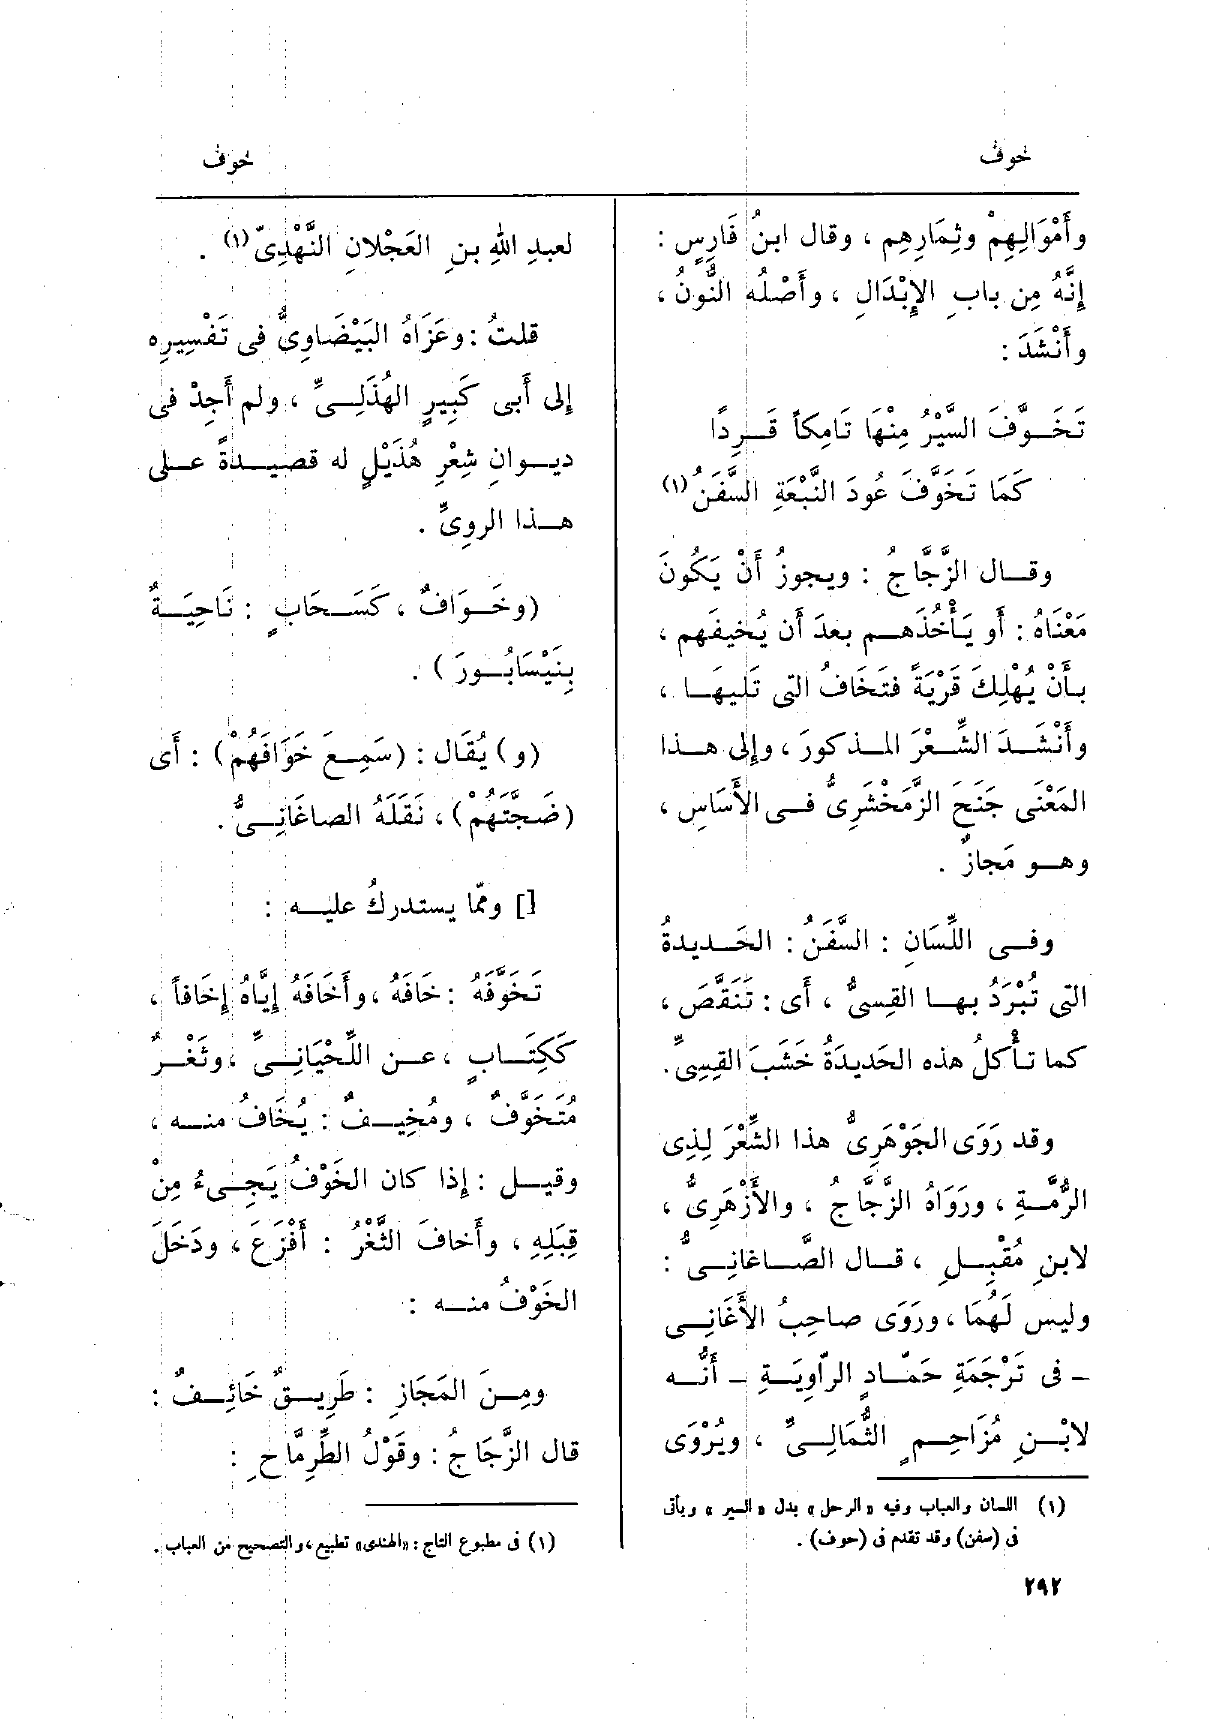 خوف
خوف
وأَمْوَالِهِمْ وثِمَارِهِم ، وقال ابنُ فَارِسٍ :
إِنَّهُ مِن بابِ الإِبْدَالِ ، وأَصْلُه النُّونُ ،
وأَنْشَدَ :
تَخَوَّفَ السَّيْرُ مِنْهَا تَامِكاً قَرِدًا
كَمَا تَخَوَّفَ عُودَ النَّبْعَةِ السَّفَنُ (١)
وقال الزَّجَّاجُ : ويجوزُ أَنْ يَكُونَ
مَعْنَاهُ : أَو يَأْخُذَهم بعدَ أَن يُخيفَهم ،
بأَنْ يُهْلِكَ قَرْيَةً فتَخَافُ التى تَلِيهَا ،
وأَنْشَدَ الشِّعْرَ المذكورَ ، وإِلى هذا
المَعْنَى جَنَحَ الزَّمَخْشَرِىُّ فى الأَسَاسِ ،
وهو مَجازٌ .
وفى اللِّسَانِ : السَّفَنُ : الحَديدةُ
التى تُبْرَدُ بها القِسىُّ ، أَى : تَنَقَّصَ ،
كما تأْكلُ هذه الحَديدَةُ خَشَبَ القِسِىِّ .
وقد رَوَى الجَوْهَرِىُّ هذا الشِّعْرَ لِذِى
الرُّمَّةِ ، ورَوَاهُ الزَّجَّاجُ ، والأَزْهَرِىُّ ،
لابنِ مُقْبِلٍ ، قال الصَّاغَانِىُّ :
وليس لَهُمَا ، ورَوَى صاحِبُ الأَغَانِى
- فى تَرْجَمَةِ حَمَّادٍ الرّاوِيَةِ - أَنَّه
لابْنِ مُزَاحِمٍ الثُّمَالِىِّ ، ويُرْوَى
(١) اللسان والعباب وفيه «الرحل» بدل «السير» ويأتى
فى (سفن) وقد تقدم فى (حوف) .
٢٩٢
لعبدِ اللهِ بنِ العَجْلانِ النَّهْدِىّ (١) .
قلتُ : وعَزَاهُ البَيْضَاوِىُّ فى تَفْسِيرِه
إِلى أَبى كَبِيرٍ الهُذَلِىِّ ، ولم أَجِدْ فى
ديوانِ شِعْرِ هُذَيْلٍ له قصيدةً على
هذا الروِىِّ .
(وخَوَافٌ ، كَسَحَابٍ : نَاحِيَةٌ
بِنَيْسَابُورَ) .
(و) يُقَال : (سَمِعَ خَوَافَهُمْ) : أَى
(ضَجَّتَهُمْ) ، نَقَلَهُ الصاغَانِىُّ .
[] وممّا يستدركُ عليه :
تَخَوَّفَهُ : خَافَهُ ، وأَخَافَهُ إِيَّاهُ إِخَافاً ،
كَكِتَابٍ ، عن اللِّحْيَانِىِّ ، وثَغْرٌ
مُتَخَوَّفٌ ، ومُخِيفٌ : يُخَافُ منه ،
وقيل : إِذا كان الخَوْفُ يَجِىءُ مِنْ
قِبَلِهِ ، وأَخافَ الثَّغْرُ : أَفْزَعَ ، ودَخَلَ
الخَوْفُ منه :
ومِنَ المَجَازِ : طَرِيقٌ خَائِفٌ :
قال الزَّجَاجُ : وقَوْلُ الطِّرِمَّاحِ :
(١) فى مطبوع التاج : «الهندى» تطبيع ، والتصحيح من العباب .